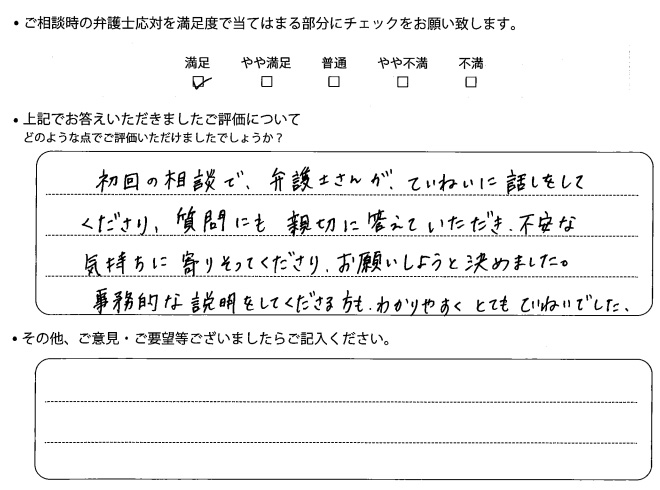 • ご相談時の弁護士応対を満足度で当てはまる部分にチェックをお願い致します。
満足 やや満足 普通 やや不満 不満
• 上記でお答えいただきましたご評価について
どのような点でご評価いただけましたでしょうか？
初回の相談で、弁護士さんが、ていねいに話しをして
くださり、質問にも親切に答えていただき、不安な
気持ちに寄りそってくださり、お願いしようと決めました。
事務的な説明をしてくださる方も、わかりやすくとてもていねいでした、
• その他、ご意見・ご要望等ございましたらご記入ください。